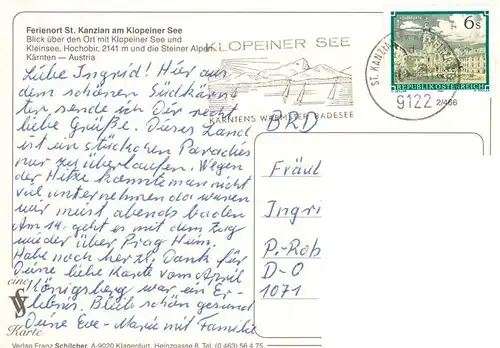 Ferienort St. Kanzian am Klopeiner See
Blick über den Ort mit Klopeiner See und
Kleinsee, Hochobir, 2141 m und die Steiner Alpen
Kärnten — Austria
KLOPEINER SEE
KÄRNTENS WÄRMSTER BADESEE
ST. KANZIAN
9122
2/466
6 S
REPUBLIK ÖSTERREICH
Liebe Ingrid! Hier aus
dem schönen Südkärn-
ten sende ich Dir recht
liebe Grüße. Dieses Land
ist ein Stückchen Paradies
nur zu überlaufen. Wegen
der Hitze konnte man nicht
viel unternehmen da waren
wir meist abends baden
Am 14. geht es mit dem Zug
wieder über Prag Heim.
Habe noch herzl. Dank für
Deine liebe Karte vom April
Königsberg war ein Er-
lebnis. Bleib schön gesund
Deine Eve-Maria mit Familie
BRD
Fräul
Ingri
P.-Rob
D-O
1071
eine
Karte
Verlag Franz Schilcher, A-9020 Klagenfurt, Heinzgasse 8, Tel. (0 463) 56 4 75